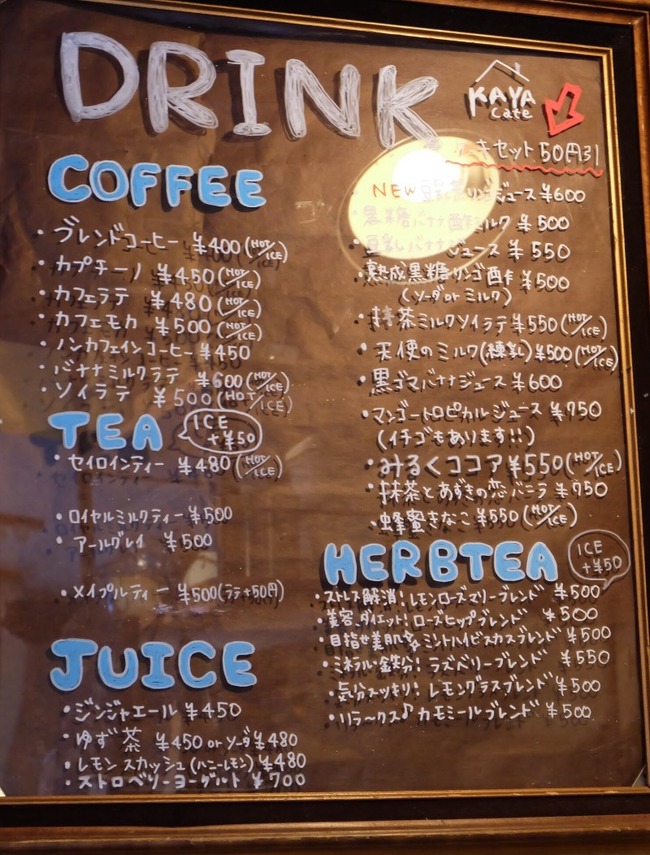 DRINK
KAYA
Cafe
キセット 50円引
COFFEE
・ブレンドコーヒー ¥400(HOT/ICE)
・カプチーノ ¥450(HOT/ICE)
・カフェラテ ¥480(HOT/ICE)
・カフェモカ ¥500(HOT/ICE)
・ノンカフェインコーヒー ¥450
・バナナミルクラテ ¥600(HOT/ICE)
・ソイラテ ¥500(HOT/ICE)
TEA
ICE
+¥50
・セイロインティー ¥480(HOT/ICE)
・ロイヤルミルクティー ¥500
・アールグレイ ¥500
・メイプルティー ¥500(ラテ+50円)
JUICE
・ジンジャエール ¥450
・ゆず茶 ¥450 or ソーダ¥480
・レモンスカッシュ(ハニーレモン)¥480
・ストロベリーヨーグルト ¥700
NEW リンゴジュース ¥600
・黒糖バナナ酢ミルク ¥500
・豆乳バナナジュース ¥550
・熟成黒糖リンゴ酢 ¥500
(ソーダorミルク)
・抹茶ミルクソイラテ ¥550(HOT/ICE)
・天使のミルク(練乳)¥500(HOT/ICE)
・黒ゴマバナナジュース ¥600
・マンゴートロピカルジュース ¥750
(イチゴもあります!!)
・みるくココア¥550(HOT/ICE)
・抹茶とあずきの恋バニラ ¥750
・蜂蜜きなこ ¥550(HOT/ICE)
HERBTEA
ICE
+¥50
・ストレス解消!レモンローズマリーブレンド ¥500
・美容、ダイエット!ローズヒップブレンド ¥500
・目指せ美肌 ミントハイビスカスブレンド ¥500
・ミネラル・鉄分!ラズベリーブレンド ¥550
・気分スッキリ!レモングラスブレンド ¥500
・リラ〜クス♪カモミールブレンド ¥500